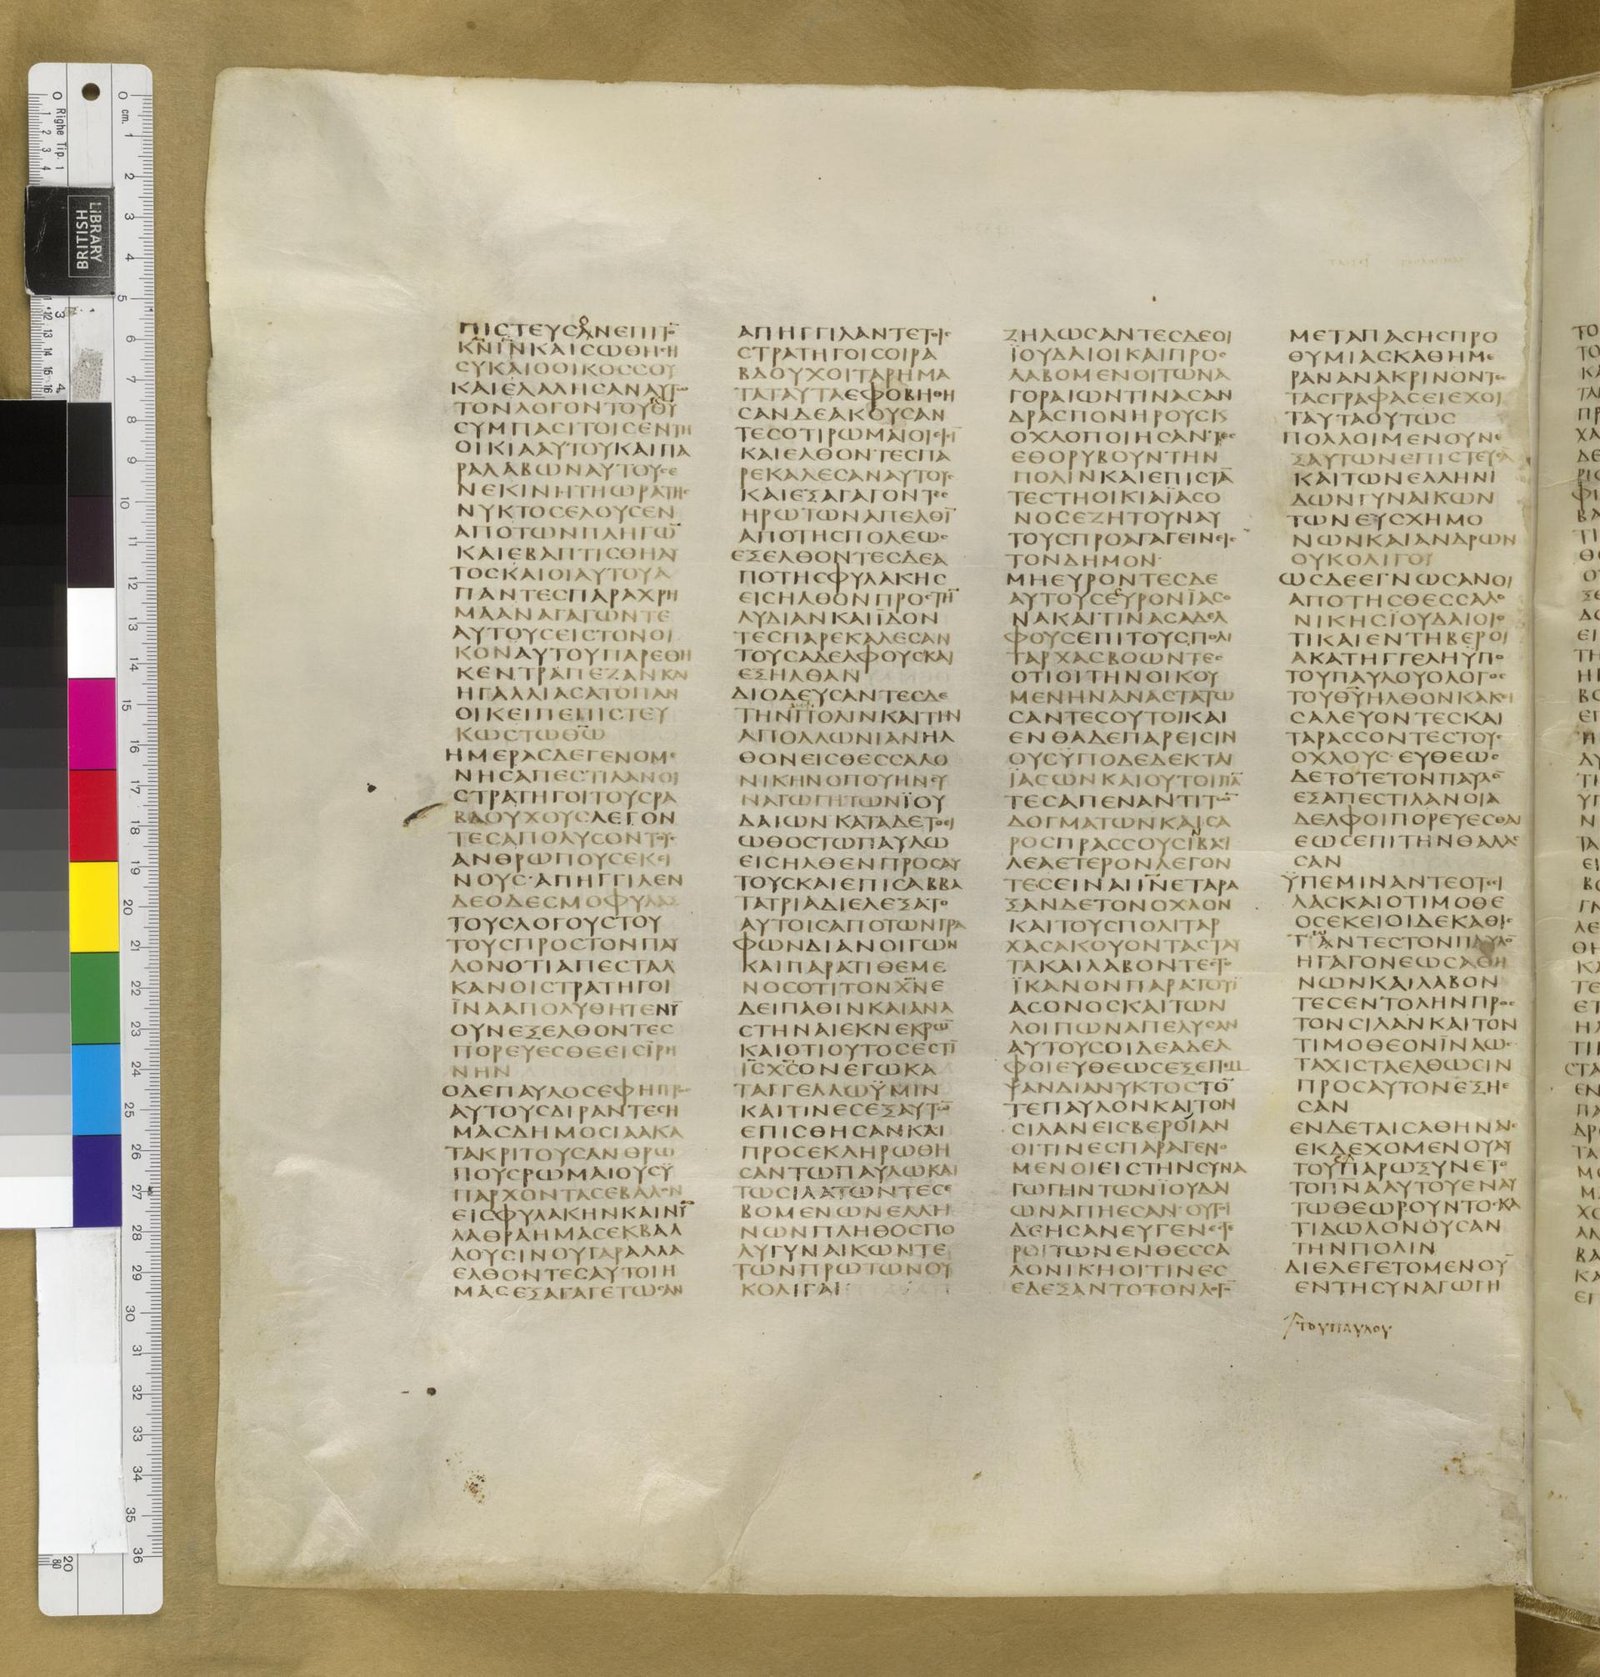 ΠΙϹΤΕΥϹΟΝΕΠΙΤΟ
ΚΝΙΝΚΑΙϹΩΘΗϹΗ
ϹΥΚΑΙΟΟΙΚΟϹϹΟΥ
ΚΑΙΕΛΑΛΗϹΑΝΑΥΤΩ
ΤΟΝΛΟΓΟΝΤΟΥΘΥ
ϹΥΜΠΑϹΙΤΟΙϹΕΝΤΗ
ΟΙΚΙΑΑΥΤΟΥΚΑΙΠΑ
ΡΑΛΑΒΩΝΑΥΤΟΥϹΕ
ΝΕΚΙΝΗΤΗΩΡΑΤΗϹ
ΝΥΚΤΟϹΕΛΟΥϹΕΝ
ΑΠΟΤΩΝΠΛΗΓΩ
ΚΑΙΕΒΑΠΤΙϹΘΗΑΥ
ΤΟϹΚΑΙΟΙΑΥΤΟΥΑ
ΠΑΝΤΕϹΠΑΡΑΧΡΗ
ΜΑΑΝΑΓΑΓΩΝΤΕ
ΑΥΤΟΥϹΕΙϹΤΟΝΟΙ
ΚΟΝΑΥΤΟΥΠΑΡΕΘΗ
ΚΕΝΤΡΑΠΕΖΑΝΚΑΙ
ΗΓΑΛΛΙΑϹΑΤΟΠΑΝ
ΟΙΚΕΙΠΕΠΙϹΤΕΥ
ΚΩϹΤΩΘΩ
ΗΜΕΡΑϹΔΕΓΕΝΟΜΕ
ΝΗϹΑΠΕϹΤΙΛΑΝΟΙ
ϹΤΡΑΤΗΓΟΙΤΟΥϹΡΑ
ΒΔΟΥΧΟΥϹΛΕΓΟΝ
ΤΕϹΑΠΟΛΥϹΟΝΤΟΥϹ
ΑΝΘΡΩΠΟΥϹΕΚΕΙ
ΝΟΥϹ·ΑΠΗΓΓΙΛΕΝ
ΔΕΟΔΕϹΜΟΦΥΛΑΞ
ΤΟΥϹΛΟΓΟΥϹΤΟΥ
ΤΟΥϹΠΡΟϹΤΟΝΠΑΥ
ΛΟΝΟΤΙΑΠΕϹΤΑΛ
ΚΑΝΟΙϹΤΡΑΤΗΓΟΙ
ΪΝΑΑΠΟΛΥΘΗΤΕΝΥ
ΟΥΝΕΞΕΛΘΟΝΤΕϹ
ΠΟΡΕΥΕϹΘΕΕΙϹΪΡΗ
ΝΗΝ
ΟΔΕΠΑΥΛΟϹΕΦΗΠΡΟϹ
ΑΥΤΟΥϹΔΙΡΑΝΤΕϹΗ
ΜΑϹΔΗΜΟϹΙΑΑΚΑ
ΤΑΚΡΙΤΟΥϹΑΝΘΡΩ
ΠΟΥϹΡΩΜΑΙΟΥϹΥ
ΠΑΡΧΟΝΤΑϹΕΒΑΛΟΝ
ΕΙϹΦΥΛΑΚΗΝΚΑΙΝΥ
ΛΑΘΡΑΗΜΑϹΕΚΒΑΛ
ΛΟΥϹΙΝΟΥΓΑΡΑΛΛΑ
ΕΛΘΟΝΤΕϹΑΥΤΟΙΗ
ΜΑϹΕΞΑΓΑΓΕΤΩϹΑΝ
ΑΠΗΓΓΙΛΑΝΤΕΤΟΙϹ
ϹΤΡΑΤΗΓΟΙϹΟΙΡΑ
ΒΔΟΥΧΟΙΤΑΡΗΜΑ
ΤΑΤΑΥΤΑΕΦΟΒΗΘΗ
ϹΑΝΔΕΑΚΟΥϹΑΝ
ΤΕϹΟΤΙΡΩΜΑΙΟΙΕΙϹΙ
ΚΑΙΕΛΘΟΝΤΕϹΠΑ
ΡΕΚΑΛΕϹΑΝΑΥΤΟΥϹ
ΚΑΙΕΞΑΓΑΓΟΝΤΕϹ
ΗΡΩΤΩΝΑΠΕΛΘΙ
ΑΠΟΤΗϹΠΟΛΕΩϹ
ΕΞΕΛΘΟΝΤΕϹΔΕΑ
ΠΟΤΗϹΦΥΛΑΚΗϹ
ΕΙϹΗΛΘΟΝΠΡΟϹΤΗ
ΛΥΔΙΑΝΚΑΙΪΔΟΝ
ΤΕϹΠΑΡΕΚΑΛΕϹΑΝ
ΤΟΥϹΑΔΕΛΦΟΥϹΚΑΙ
ΕΞΗΛΘΑΝ
ΔΙΟΔΕΥϹΑΝΤΕϹΔΕ
ΤΗΝΠΟΛΙΝΚΑΙΤΗΝ
ΑΠΟΛΛΩΝΙΑΝΗΛ
ΘΟΝΕΙϹΘΕϹϹΑΛΟ
ΝΙΚΗΝΟΠΟΥΗΝϹΥ
ΝΑΓΩΓΗΤΩΝΪΟΥ
ΔΑΙΩΝΚΑΤΑΔΕΤΟΕΙ
ΩΘΟϹΤΩΠΑΥΛΩ
ΕΙϹΗΛΘΕΝΠΡΟϹΑΥ
ΤΟΥϹΚΑΙΕΠΙϹΑΒΒΑ
ΤΑΤΡΙΑΔΙΕΛΕΞΑΤΟ
ΑΥΤΟΙϹΑΠΟΤΩΝΓΡΑ
ΦΩΝΔΙΑΝΟΙΓΩΝ
ΚΑΙΠΑΡΑΤΙΘΕΜΕ
ΝΟϹΟΤΙΤΟΝΧΝΕ
ΔΕΙΠΑΘΙΝΚΑΙΑΝΑ
ϹΤΗΝΑΙΕΚΝΕΚΡΩ
ΚΑΙΟΤΙΟΥΤΟϹΕϹΤΙ
ΙϹΧϹΟΝΕΓΩΚΑ
ΤΑΓΓΕΛΛΩΫΜΙΝ
ΚΑΙΤΙΝΕϹΕΞΑΥΤΩ
ΕΠΙϹΘΗϹΑΝΚΑΙ
ΠΡΟϹΕΚΛΗΡΩΘΗ
ϹΑΝΤΩΠΑΥΛΩΚΑΙ
ΤΩϹΙΛΑΤΩΝΤΕϹΕ
ΒΟΜΕΝΩΝΕΛΛΗ
ΝΩΝΠΛΗΘΟϹΠΟ
ΛΥΓΥΝΑΙΚΩΝΤΕ
ΤΩΝΠΡΩΤΩΝΟΥ
ΚΟΛΙΓΑΙ
ΖΗΛΩϹΑΝΤΕϹΔΕΟΙ
ΪΟΥΔΑΙΟΙΚΑΙΠΡΟϹ
ΛΑΒΟΜΕΝΟΙΤΩΝΑ
ΓΟΡΑΙΩΝΤΙΝΑϹΑΝ
ΔΡΑϹΠΟΝΗΡΟΥϹΚ
ΟΧΛΟΠΟΙΗϹΑΝΤΕϹ
ΕΘΟΡΥΒΟΥΝΤΗΝ
ΠΟΛΙΝΚΑΙΕΠΙϹΤΑ
ΤΕϹΤΗΟΙΚΙΑΪΑϹΟ
ΝΟϹΕΖΗΤΟΥΝΑΥ
ΤΟΥϹΠΡΟΑΓΑΓΕΙΝΕΙϹ
ΤΟΝΔΗΜΟΝ·
ΜΗΕΥΡΟΝΤΕϹΔΕ
ΑΥΤΟΥϹΕΥΡΟΝΪΑϹΟ
ΝΑΚΑΙΤΙΝΑϹΑΔΕΛ
ΦΟΥϹΕΠΙΤΟΥϹΠΟΛΙ
ΤΑΡΧΑϹΒΟΩΝΤΕϹ
ΟΤΙΟΙΤΗΝΟΙΚΟΥ
ΜΕΝΗΝΑΝΑϹΤΑΤΩ
ϹΑΝΤΕϹΟΥΤΟΙΚΑΙ
ΕΝΘΑΔΕΠΑΡΕΙϹΙΝ
ΟΥϹΫΠΟΔΕΔΕΚΤΑΙ
ΪΑϹΩΝΚΑΙΟΥΤΟΙΠΑ
ΤΕϹΑΠΕΝΑΝΤΙΤΩ
ΔΟΓΜΑΤΩΝΚΑΙϹΑ
ΡΟϹΠΡΑϹϹΟΥϹΙΒΑϹΙ
ΛΕΑΕΤΕΡΟΝΛΕΓΟΝ
ΤΕϹΕΙΝΑΙΙΝΕΤΑΡΑ
ΞΑΝΔΕΤΟΝΟΧΛΟΝ
ΚΑΙΤΟΥϹΠΟΛΙΤΑΡ
ΧΑϹΑΚΟΥΟΝΤΑϹΤΑΥ
ΤΑΚΑΙΛΑΒΟΝΤΕϹΤΟ
ΪΚΑΝΟΝΠΑΡΑΤΟΥΪ
ΑϹΟΝΟϹΚΑΙΤΩΝ
ΛΟΙΠΩΝΑΠΕΛΥϹΑΝ
ΑΥΤΟΥϹΟΙΔΕΑΔΕΛ
ΦΟΙΕΥΘΕΩϹΕΞΕΠΕΜ
ΨΑΝΔΙΑΝΥΚΤΟϹΤΟ
ΤΕΠΑΥΛΟΝΚΑΙΤΟΝ
ϹΙΛΑΝΕΙϹΒΕΡΟΙΑΝ
ΟΙΤΙΝΕϹΠΑΡΑΓΕΝΟ
ΜΕΝΟΙΕΙϹΤΗΝϹΥΝΑ
ΓΩΓΗΝΤΩΝΪΟΥΔΑΙ
ΩΝΑΠΗΕϹΑΝ·ΟΥΤΟΙ
ΔΕΗϹΑΝΕΥΓΕΝΕϹΤΕ
ΡΟΙΤΩΝΕΝΘΕϹϹΑ
ΛΟΝΙΚΗΟΙΤΙΝΕϹ
ΕΔΕΞΑΝΤΟΤΟΝΛΟΓΟ
ΜΕΤΑΠΑϹΗϹΠΡΟ
ΘΥΜΙΑϹΚΑΘΗΜΕ
ΡΑΝΑΝΑΚΡΙΝΟΝΤΕϹ
ΤΑϹΓΡΑΦΑϹΕΙΕΧΟΙ
ΤΑΥΤΑΟΥΤΩϹ
ΠΟΛΛΟΙΜΕΝΟΥΝΕ
ΞΑΥΤΩΝΕΠΙϹΤΕΥϹΑ
ΚΑΙΤΩΝΕΛΛΗΝΙ
ΔΩΝΓΥΝΑΙΚΩΝ
ΤΩΝΕΥϹΧΗΜΟ
ΝΩΝΚΑΙΑΝΔΡΩΝ
ΟΥΚΟΛΙΓΟΙ
ΩϹΔΕΕΓΝΩϹΑΝΟΙ
ΑΠΟΤΗϹΘΕϹϹΑΛΟ
ΝΙΚΗϹΪΟΥΔΑΙΟΙΟ
ΤΙΚΑΙΕΝΤΗΒΕΡΟΙ
ΑΚΑΤΗΓΓΕΛΗΥΠΟ
ΤΟΥΠΑΥΛΟΥΟΛΟΓΟϹ
ΤΟΥΘΥΗΛΘΟΝΚΑΚΕΙ
ϹΑΛΕΥΟΝΤΕϹΚΑΙ
ΤΑΡΑϹϹΟΝΤΕϹΤΟΥϹ
ΟΧΛΟΥϹ·ΕΥΘΕΩϹ
ΔΕΤΟΤΕΤΟΝΠΑΥΛΟ
ΕΞΑΠΕϹΤΙΛΑΝΟΙΑ
ΔΕΛΦΟΙΠΟΡΕΥΕϹΘΑΙ
ΕΩϹΕΠΙΤΗΝΘΑΛΑϹ
ϹΑΝ
ΫΠΕΜΙΝΑΝΤΕΟΤΕϹΙ
ΛΑϹΚΑΙΟΤΙΜΟΘΕ
ΟϹΕΚΕΙΟΙΔΕΚΑΘΙϹ
ΤΑΝΤΕϹΤΟΝΠΑΥΛΟ
ΗΓΑΓΟΝΕΩϹΑΘΗ
ΝΩΝΚΑΙΛΑΒΟΝ
ΤΕϹΕΝΤΟΛΗΝΠΡΟϹ
ΤΟΝϹΙΛΑΝΚΑΙΤΟΝ
ΤΙΜΟΘΕΟΝΪΝΑΩϹ
ΤΑΧΙϹΤΑΕΛΘΩϹΙΝ
ΠΡΟϹΑΥΤΟΝΕΞΗΕ
ϹΑΝ
ΕΝΔΕΤΑΙϹΑΘΗΝΑΙϹ
ΕΚΔΕΧΟΜΕΝΟΥΑΥ
ΤΟΥΠΑΡΩΞΥΝΕΤΟ
ΤΟΠΝΑΑΥΤΟΥΕΝΑΥ
ΤΩΘΕΩΡΟΥΝΤΟϹΚΑ
ΤΙΔΩΛΟΝΟΥϹΑΝ
ΤΗΝΠΟΛΙΝ
ΔΙΕΛΕΓΕΤΟΜΕΝΟΥ
ΕΝΤΗϹΥΝΑΓΩΓΗ
ΤΟΥΠΑΥΛΟΥ
BRITISH
LIBRARY
Righe Tip. 1
cm.